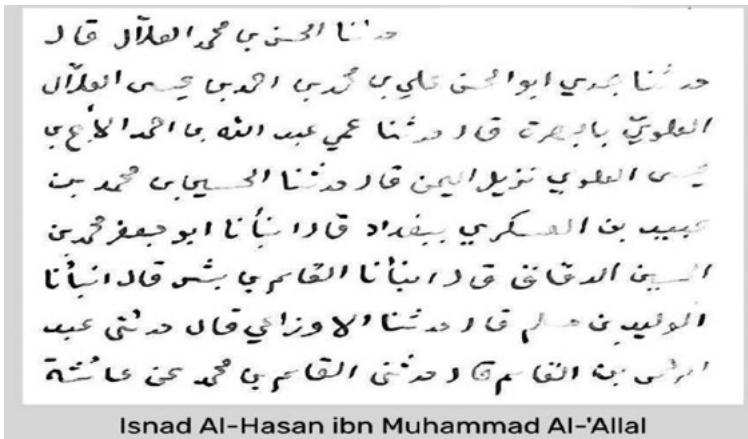 حدثنا الحسن بن محمد العلّال قال
حدثنا جدي ابو الحسن علي بن محمد بن احمد بن عيسى العلّال
العلويّ بالبصرة قال حدثنا عمي عبد الله بن احمد الأبح بن
عيسى العلوي نزيل اليمن قال حدثنا الحسين بن محمد بن
عبيد بن العسكري ببغداد قال انبأنا ابو جعفر محمد بن
الحسين الدقاق قال انبأنا القاسم بن بشر قال انبأنا
الوليد بن مسلم قال حدثنا الاوزاعي قال حدثنى عبد
الرحمن بن القاسم قال حدثنى القاسم بن محمد عن عائشة
Isnad Al-Hasan ibn Muhammad Al-'Allal